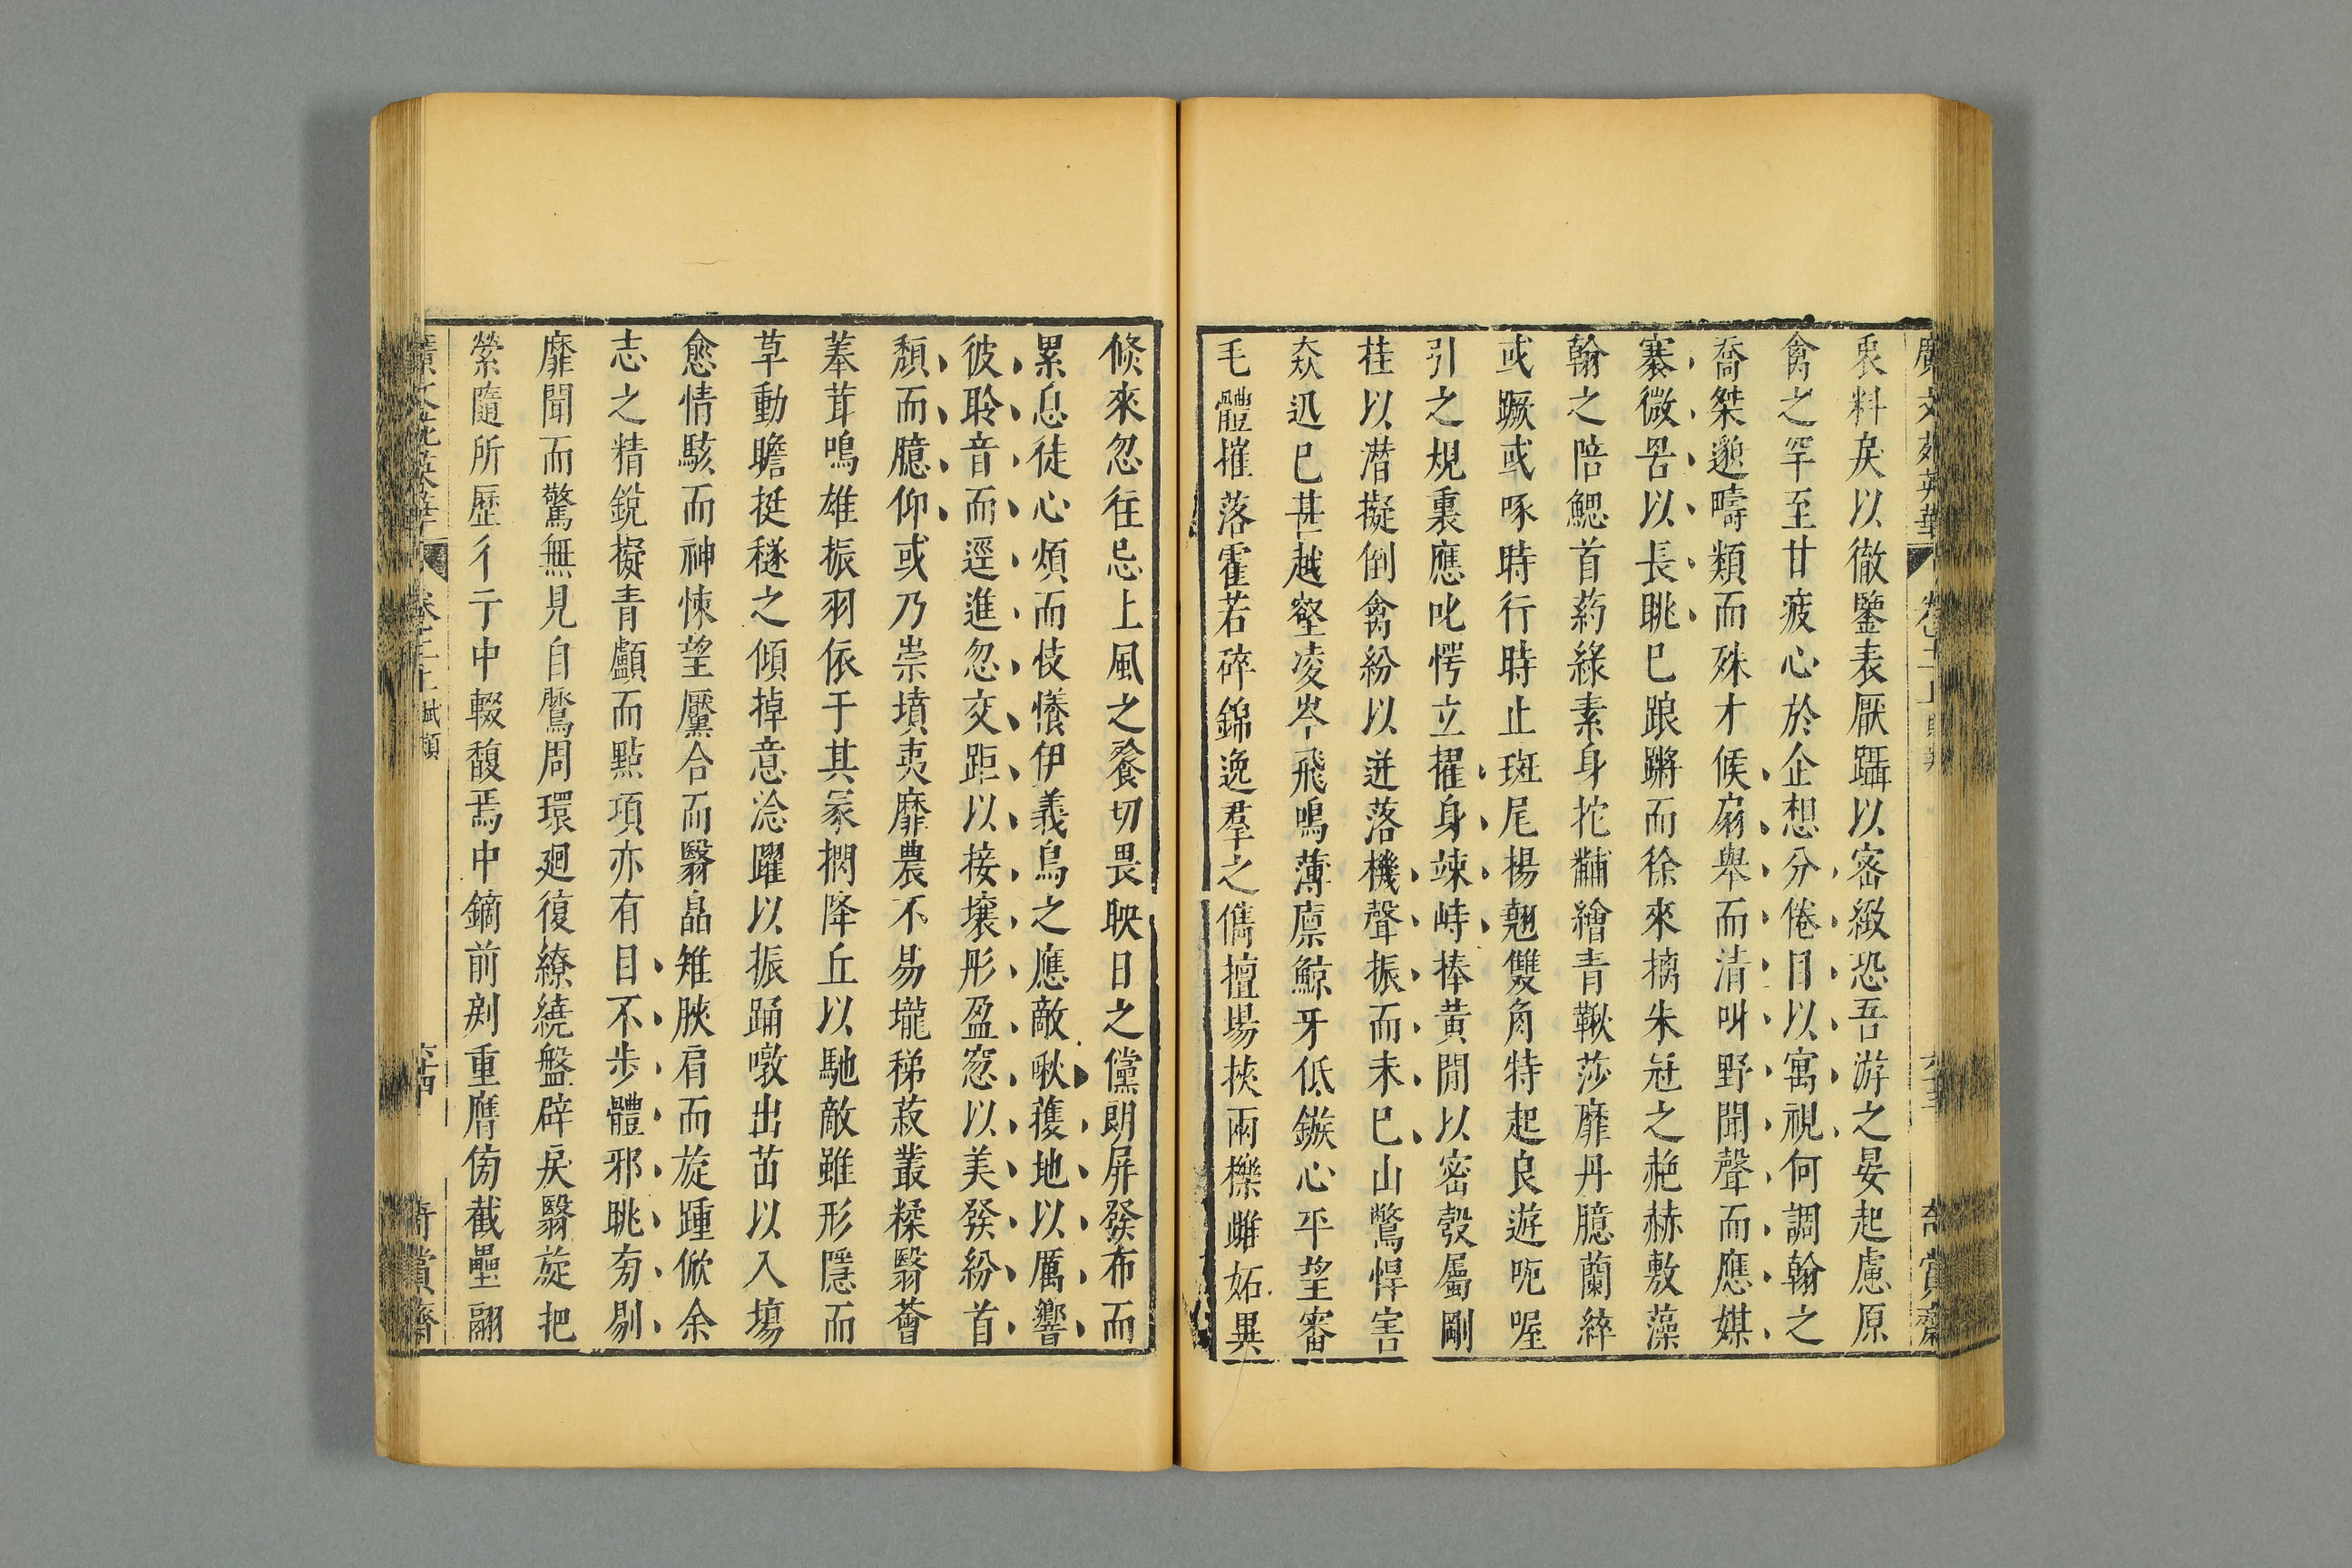 廣文苑英華 卷二十上 賦類 六十三 奇賞齋
衷料戾以徹鑒表厭躡以密緻恐吾游之晏起慮原
禽之罕至甘疲心於企想分倦目以寓視何調翰之
喬桀邈疇類而殊才候扇舉而清叫野聞聲而應媒
褰微罟以長眺已踉蹡而徐來摛朱冠之赩赫敷藻
翰之陪鰓首葯綠素身拕黼繪青鞦莎靡丹臆蘭綷
或蹶或啄時行時止斑尾楊翹雙角特起良遊呃喔
引之規裏應叱愕立擢身竦峙捧黃閒以密彀屬剛
挂以潛擬倒禽紛以迸落機聲振而未已山鷩悍害
猋迅已甚越壑凌岑飛鳴薄廩鯨牙低鏃心平望審
毛體摧落霍若碎錦逸羣之儁擅場挾兩櫟雌妬異
倐來忽往忌上風之餮切畏映日之儻朗屏發布而
累息徒心煩而伎懩伊義鳥之應敵啾擭地以厲響
彼聆音而逕進忽交距以接壤彤盈窓以美發紛首
頽而臆仰或乃崇墳夷靡農不易壠稊菽叢糅翳薈
菶茸鳴雄振羽依于其冡捫降丘以馳敵雖形隱而
草動瞻挺穟之傾掉意淰躍以振踊暾出苗以入塲
愈情駭而神悚望黶合而翳晶雉脥肩而旋踵俽余
志之精銳擬青顱而點項亦有目不步體邪眺旁剔
靡聞而驚無見自鷩周環廻復繚繞盤辟戾翳旋把
縈隨所歷彳亍中輟馥焉中鏑前剡重膺傍截疊翮
廣文苑英華 卷二十上 賦類 六十四 奇賞齋